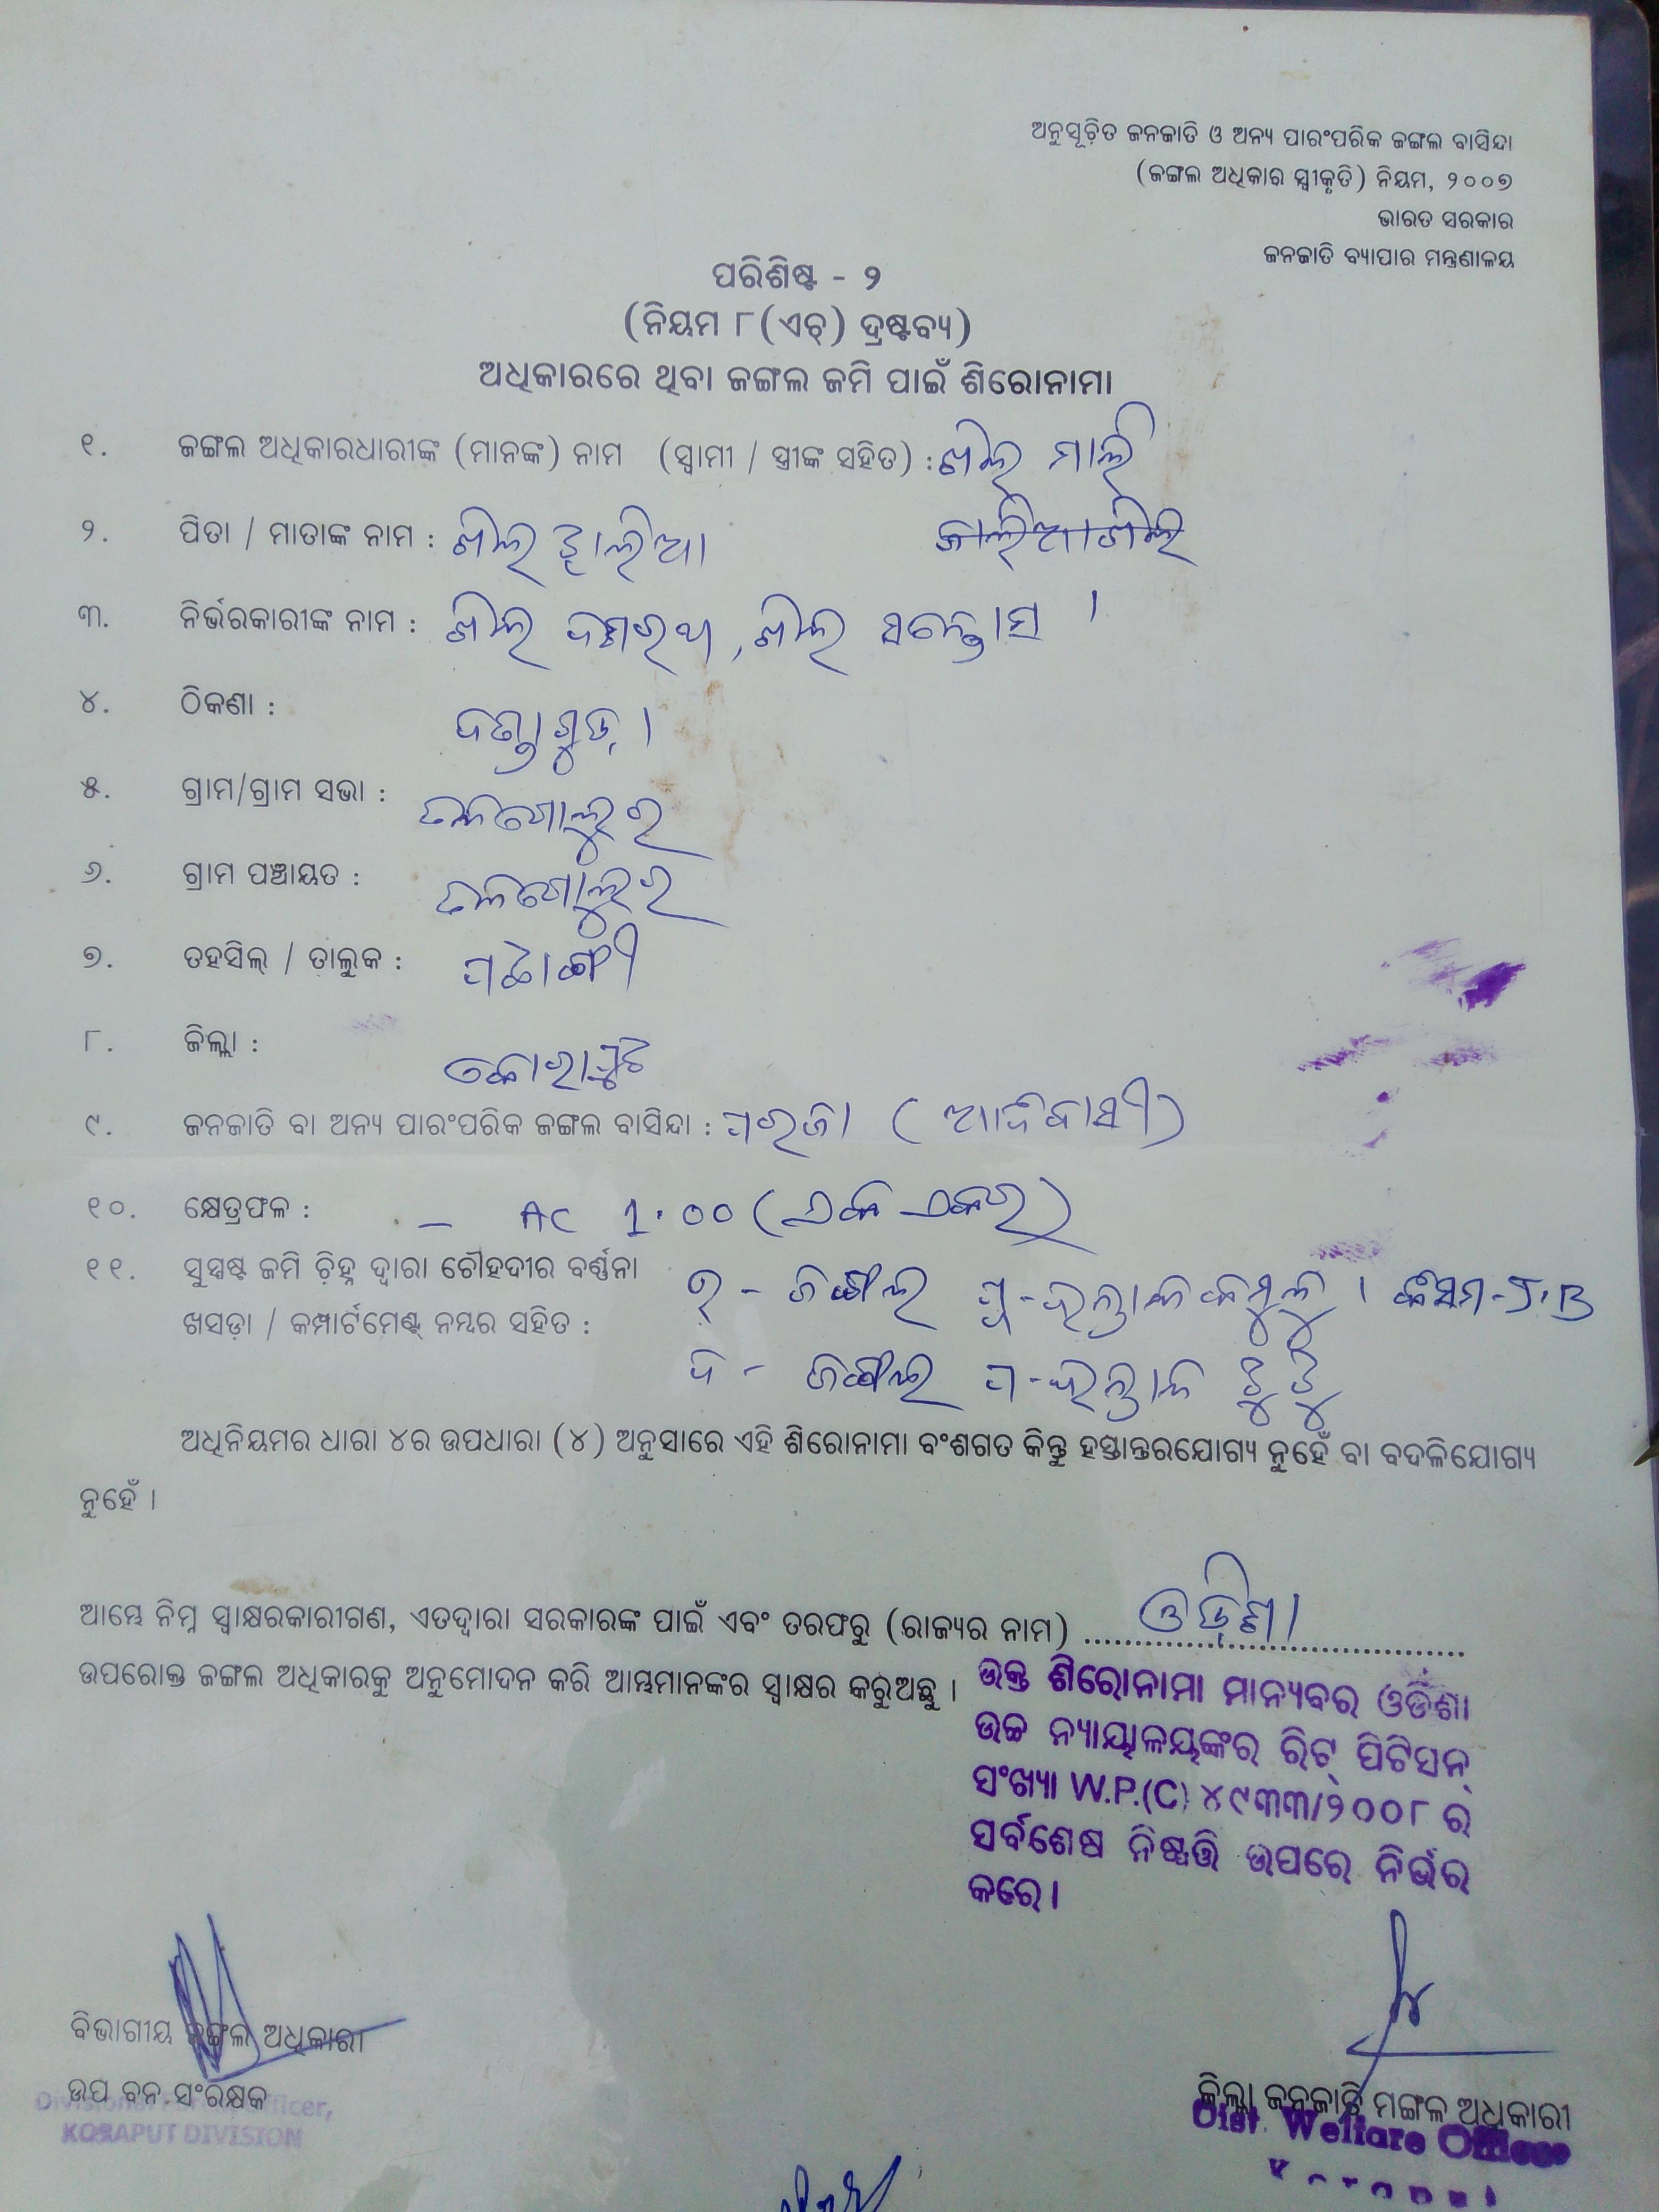 ଅନୁସୂଚିତ ଜନଜାତି ଓ ଅନ୍ୟ ପାରଂପରିକ ଜଙ୍ଗଲ ବାସିନ୍ଦା
(ଜଙ୍ଗଲ ଅଧିକାର ସ୍ୱୀକୃତି) ନିୟମ, ୨୦୦୭
ଭାରତ ସରକାର
ଜନଜାତି ବ୍ୟାପାର ମନ୍ତ୍ରଣାଳୟ
ପରିଶିଷ୍ଟ - ୨
(ନିୟମ ୮(ଏଚ୍) ଦ୍ରଷ୍ଟବ୍ୟ)
ଅଧିକାରରେ ଥିବା ଜଙ୍ଗଲ ଜମି ପାଇଁ ଶିରୋନାମା
୧. ଜଙ୍ଗଲ ଅଧିକାରଧାରୀଙ୍କ (ମାନଙ୍କ) ନାମ (ସ୍ୱାମୀ / ସ୍ତ୍ରୀଙ୍କ ସହିତ) : ଖୀଲ ମାଲି
୨. ପିତା / ମାତାଙ୍କ ନାମ : ଖୀଲ
୩. ନିର୍ଭରକାରୀଙ୍କ ନାମ : ଖୀଲ ଦଶରଥ, ଖୀଲ ସନ୍ତୋସ ।
୪. ଠିକଣା :
୫. ଗ୍ରାମ/ଗ୍ରାମ ସଭା :
୬. ଗ୍ରାମ ପଞ୍ଚାୟତ :
୭. ତହସିଲ୍ / ତାଲୁକ : ପଟାଙ୍ଗୀ
୮. ଜିଲ୍ଲା : କୋରାପୁଟ
୯. ଜନଜାତି ବା ଅନ୍ୟ ପାରଂପରିକ ଜଙ୍ଗଲ ବାସିନ୍ଦା : ପରଜା (ଆଦିବାସୀ)
୧୦. କ୍ଷେତ୍ରଫଳ : - AC 1.00 (ଏକ ଏକର)
୧୧. ସୁସ୍ପଷ୍ଟ ଜମି ଚିହ୍ନ ଦ୍ୱାରା ଚୌହଦୀର ବର୍ଣ୍ଣନା ଉ - ଜଙ୍ଗଲ ପୂ - କିସମ - J.B
ଖସଡ଼ା / କମ୍ପାର୍ଟମେଣ୍ଟ୍ ନମ୍ବର ସହିତ : ଦ - ଜଙ୍ଗଲ ପ -
ଅଧିନିୟମର ଧାରା ୪ର ଉପଧାରା (୪) ଅନୁସାରେ ଏହି ଶିରୋନାମା ବଂଶଗତ କିନ୍ତୁ ହସ୍ତାନ୍ତରଯୋଗ୍ୟ ନୁହେଁ ବା ବଦଳିଯୋଗ୍ୟ
ନୁହେଁ ।
ଆମ୍ଭେ ନିମ୍ନ ସ୍ୱାକ୍ଷରକାରୀଗଣ, ଏତଦ୍ୱାରା ସରକାରଙ୍କ ପାଇଁ ଏବଂ ତରଫରୁ (ରାଜ୍ୟର ନାମ) ଓଡ଼ିଶା
ଉପରୋକ୍ତ ଜଙ୍ଗଲ ଅଧିକାରକୁ ଅନୁମୋଦନ କରି ଆମ୍ଭମାନଙ୍କର ସ୍ୱାକ୍ଷର କରୁଅଛୁ ।
ଉକ୍ତ ଶିରୋନାମା ମାନ୍ୟବର ଓଡିଶା
ଉଚ୍ଚ ନ୍ୟାୟାଳୟଙ୍କର ରିଟ୍ ପିଟିସନ୍
ସଂଖ୍ୟା W.P.(C) ୪୯୩୩/୨୦୦୮ ର
ସର୍ବଶେଷ ନିଷ୍ପତ୍ତି ଉପରେ ନିର୍ଭର
କରେ ।
ବିଭାଗୀୟ ଜଙ୍ଗଲ ଅଧିକାରୀ
ଉପ ବନ ସଂରକ୍ଷକ
Divisional Officer,
KORAPUT DIVISION
ଜିଲ୍ଲା ଜନଜାତି ମଙ୍ଗଳ ଅଧିକାରୀ
Dist. Welfare Officer